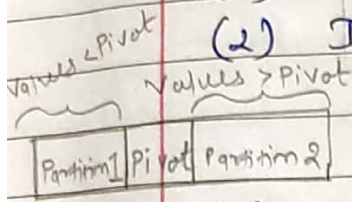 (2)
values < Pivot
values > Pivot
Partition 1 Pivot Partition 2